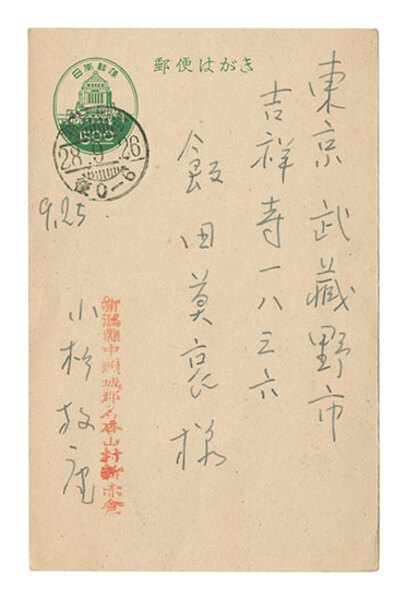 郵便はがき
日本郵便
500
28.9.26
后0-6
東京 武藏野市
吉祥寺一八三六
飯田莫哀様
9,25
新潟縣中頸城郡名香山村新赤倉
小杉放庵